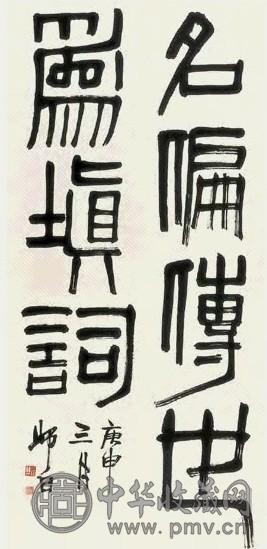 名偏傳世
爲塡詞
庚申
三月
中华收藏网
www.pmv.cn